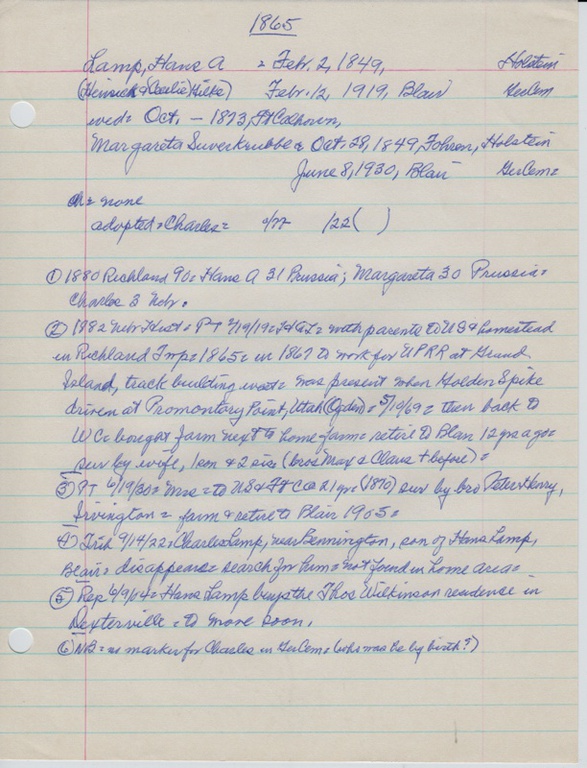 1865
Lamp, Hans A = Feb. 2, 1849, Holstein
(Heinrich & Cecilie Hilke) Feb. 12, 1919, Blair GerCem
wed = Oct. - 1873, Ft Calhoun,
Margareta Suverkrubbe = Oct. 28, 1849, Holstein
June 8, 1930, Blair GerCem =
ch = none
adopted = Charles = /22 ( )
① 1880 Richland 90 = Hans A 31 Prussia; Margareta 30 Prussia =
Charles 3 Nebr.
② Nebr Hist = PT 2/19/19 = = with parents to US & homestead
in Richland Twp = 1865 = in 1867 to work for UPRR at Grand
Island, track building west = was present when Golden Spike
driven at Promontory Point, Utah (Ogden) = 5/10/69 = then back to
WC = bought farm next to home farm = retire to Blair 12 yrs ago =
surv by wife, 1 son & 2 sis (bros Max & Claus + before) =
③ PT 6/19/30 = Mrs = to US & Ft C @ 21 yr = (1870) surv by bro Peter & Henry,
Irvington = farm & retire to Blair 1905 =
④ Trib 9/14/22 = Charles Lamp, near Bennington, son of Hans Lamp,
Blair = disappears = search for him = not found in home area =
⑤ Rep 6/9/04 = Hans Lamp buys the Thos Wilkinson residence in
Dexterville = to move soon.
⑥ NB = no marker for Charles in GerCem = (who was he by birth?)